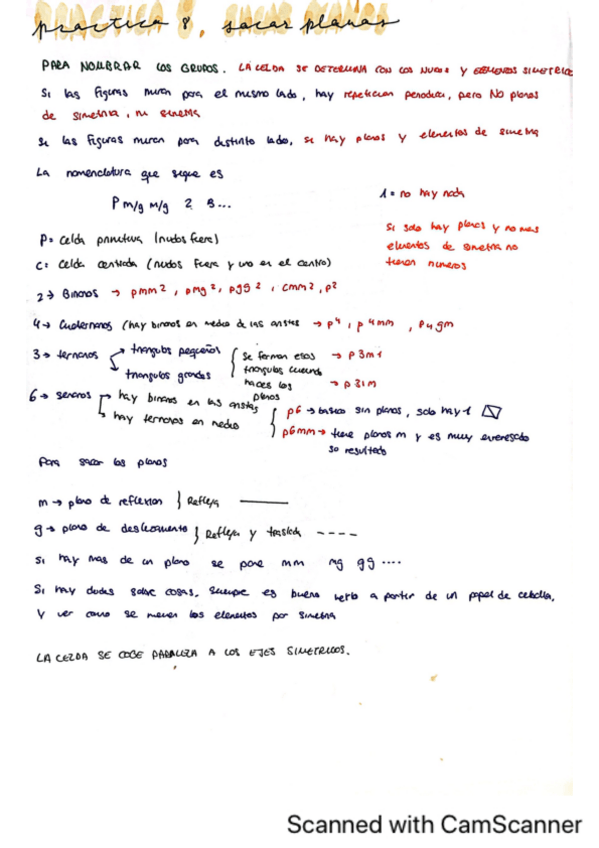 practica 8. sacar planos
PARA NOMBRAR LOS GRUPOS. LA CELDA SE DETERMINA CON LOS NUDOS Y ELEMENTOS SIMETRICOS
Si las figuras miran para el mismo lado, hay repeticion periodica, pero NO planos
de simetria, ni simetria
Si las figuras miran para distinto lado, si hay planos y elementos de simetria
La nomenclatura que sigue es
P m/g m/g 2 3...
1 = no hay nada
P = Celda primitiva (nudos fuera)
Si solo hay planos y no mas
elementos de simetria no
tienen numeros
C = Celda centrada (nudos fuera y uno en el centro)
2 → Binarios → pmm2, pmg2, pgg2, cmm2, p2
4 → Cuaternarios (hay binarios en medio de las aristas → p4, p4mm, p4gm
3 → ternarios triangulos pequeños
triangulos grandes
se forman esos
triangulos cuando
haces los
planos
→ p3m1
→ p31m
6 → senarios hay binarios en las aristas
hay ternarios en medio
p6 → basico sin planos, solo hay 1
p6mm → tiene planos m y es muy enrevesado
su resultado
Para sacar los planos
m → plano de reflexion } Refleja
g → plano de deslizamiento } Refleja y traslada ----
Si hay mas de un plano se pone mm mg gg ....
Si hay dudas sobre cosas, siempre es bueno verlo a partir de un papel de cebolla,
Y ver como se mueven los elementos por simetria
LA CELDA SE COGE PARALELA A LOS EJES SIMETRICOS.
Scanned with CamScanner